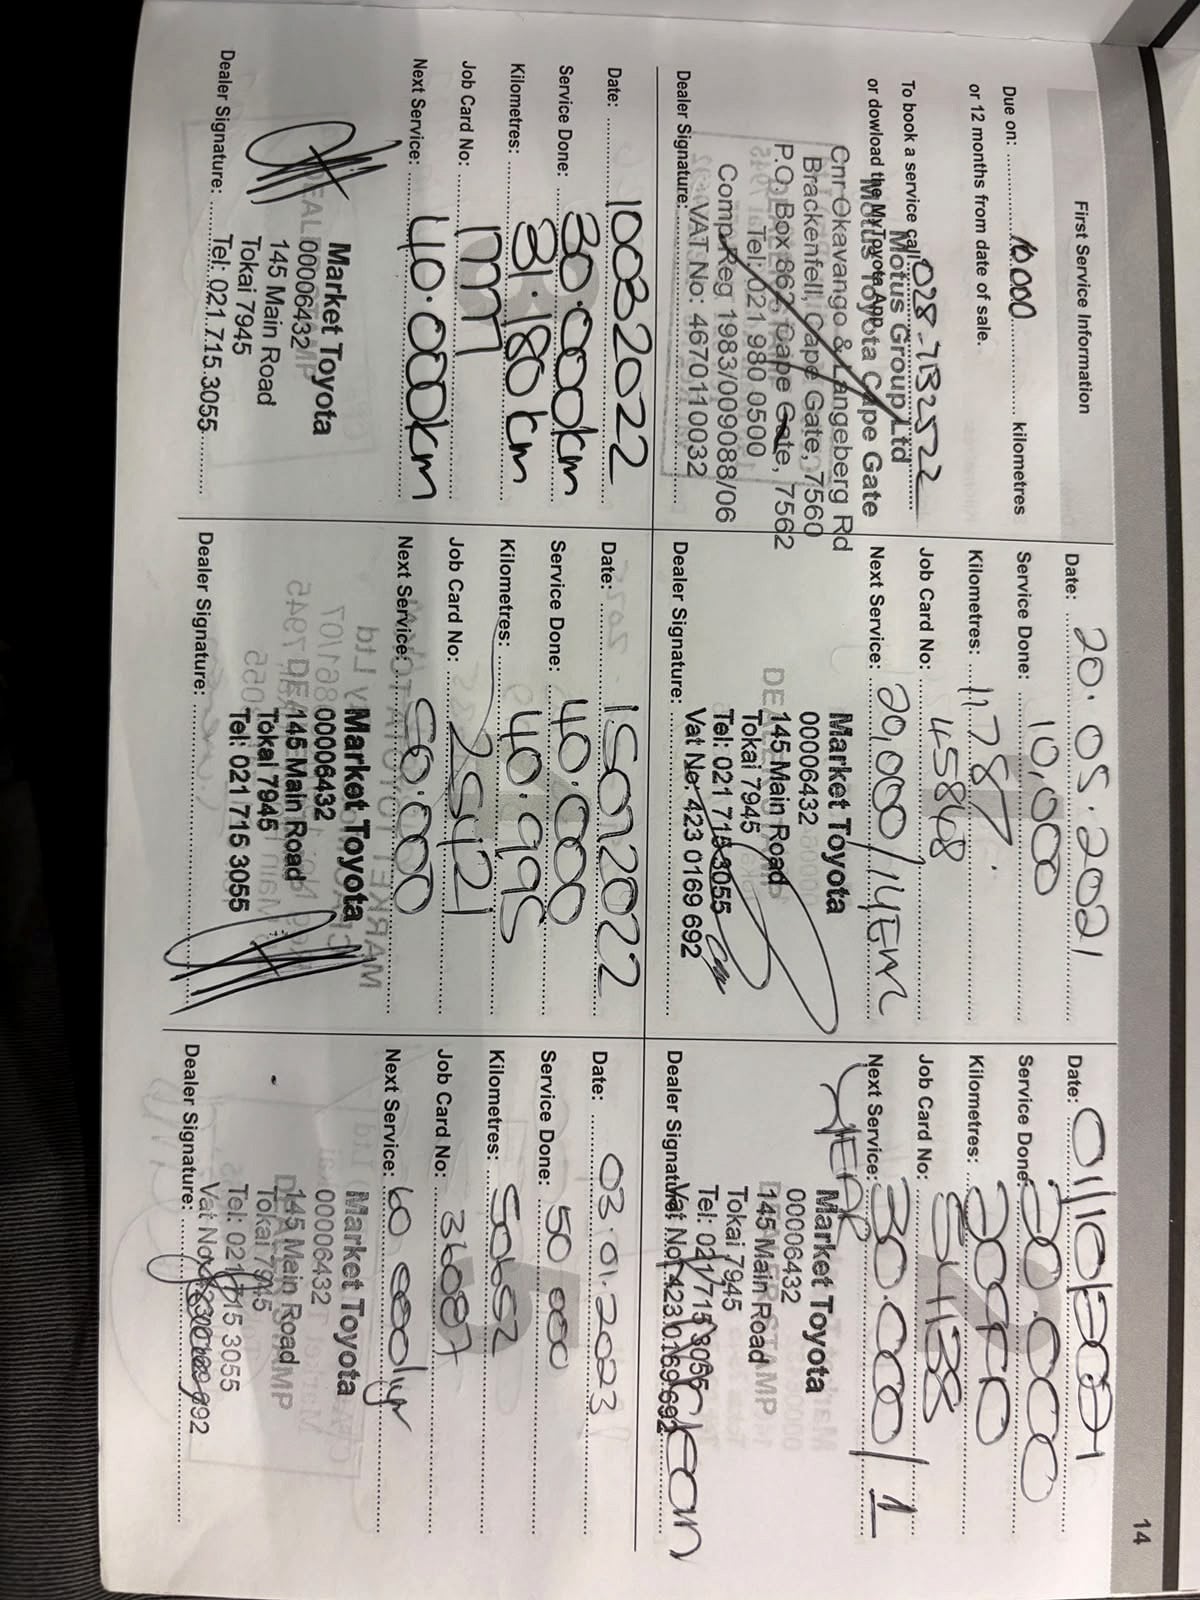 14
First Service Information
Due on: 10000 kilometres
or 12 months from date of sale.
To book a service call 028-7132522
or dowload the MyToyota App
Motus Group Ltd
Motus Toyota Cape Gate
Cnr Okavango & Langeberg Rd
Brackenfell, Cape Gate, 7560
P.O. Box 862, Cape Gate, 7562
Tel: 021 980 0500
Comp Reg 1983/009088/06
VAT No: 4670110032
Dealer Signature:
Date: 20.05.2021
Service Done: 10,000
Kilometres: 11787.
Job Card No: 45868
Next Service: 20,000/1YEAR
Market Toyota
00006432
145 Main Road
Tokai 7945
Tel: 021 715 3055
Vat No: 423 0169 692
Dealer Signature:
Date: 01/10/2021
Service Done: 20.000
Kilometres:
Job Card No: 54138
Next Service: 30.000/1
YEAR
Market Toyota
00006432
145 Main Road
Tokai 7945
Tel: 021 715 3055
Vat No: 423 0169 692
Dealer Signature:
Date: 10032022
Service Done: 30.000km
Kilometres: 31.180km
Job Card No:
Next Service: 40.000km
Market Toyota
00006432
145 Main Road
Tokai 7945
Tel: 021 715 3055
Dealer Signature:
Date: 15072022
Service Done: 40.000
Kilometres: 40.995
Job Card No: 2542
Next Service: 50.000
Market Toyota
00006432
145 Main Road
Tokai 7945
Tel: 021 715 3055
Dealer Signature:
Date: 03.01.2023
Service Done: 50 000
Kilometres: 50652
Job Card No: 36087
Next Service: 60 000/1yr
Market Toyota
00006432
145 Main Road
Tokai 7945
Tel: 021 715 3055
Vat No
Dealer Signature: